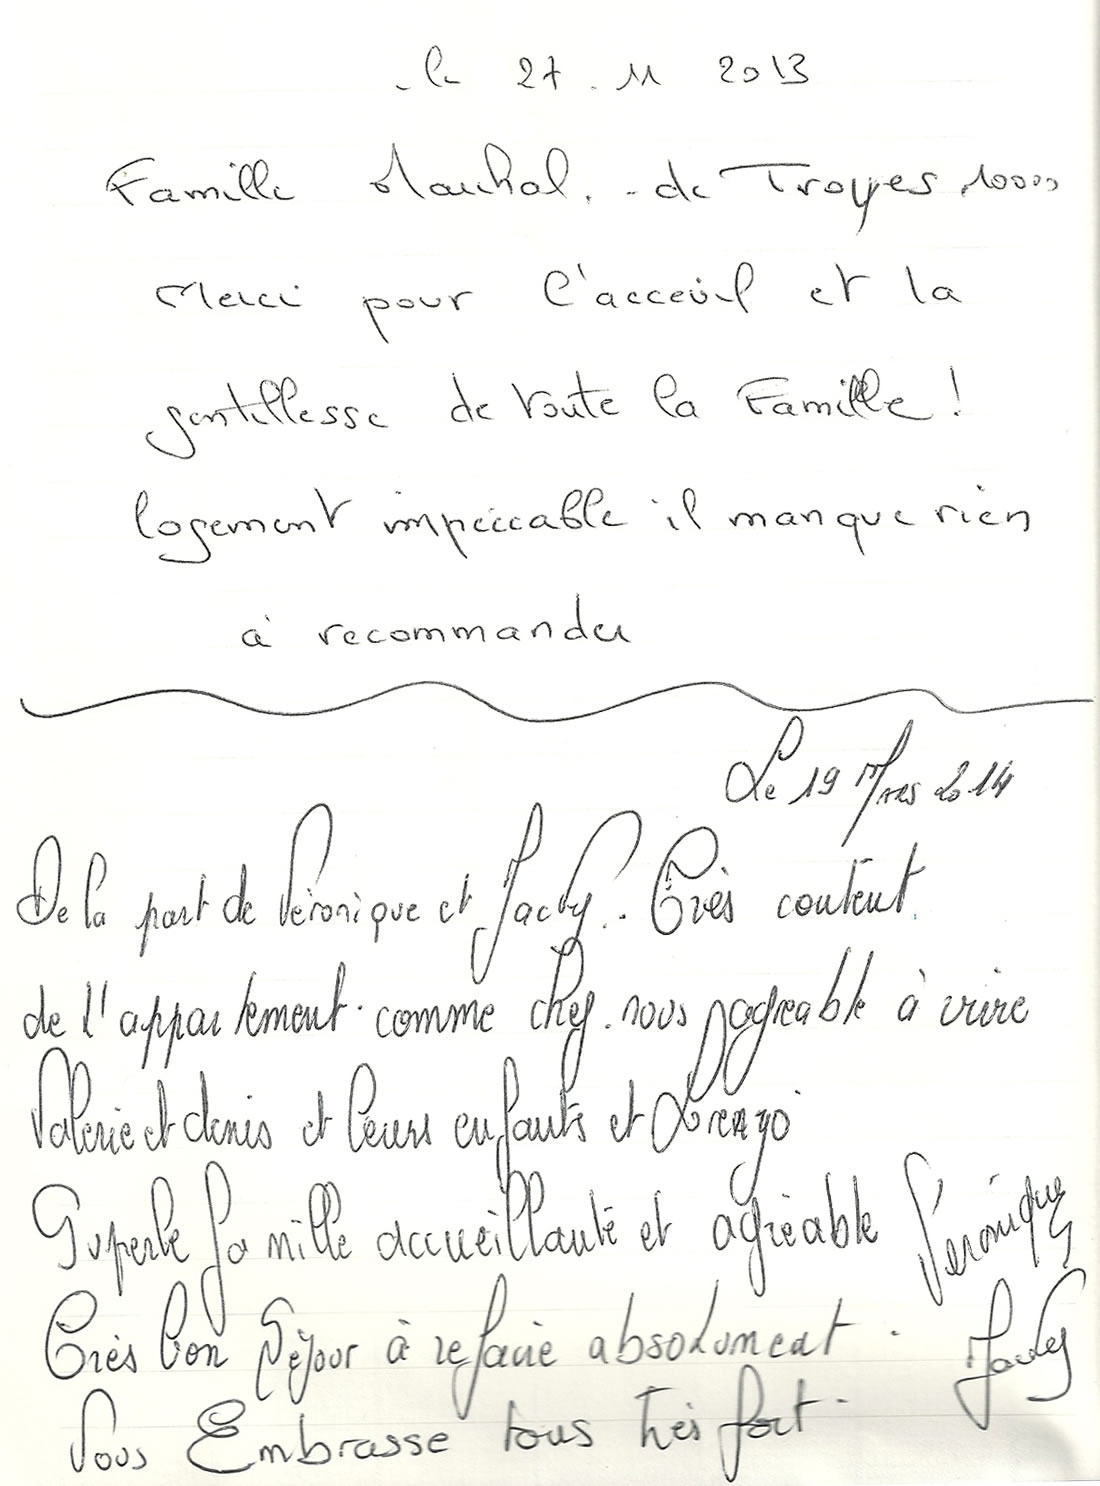 le 27.11 2013
Famille Marchal. - de Troyes 10000
Merci pour l'acceuil et la
gentillesse de toute la Famille !
logement impeccable il manque rien
à recommander
Le 19 Mars 2014
De la part de Véronique et Jacky. Très content
de l'appartement. comme chez nous agréable à vivre
Valérie et denis et leurs enfants et Lorenzo
Superbe famille accueillante et agréable Véronique
Très bon Séjour à refaire absolument. Jacky
Vous Embrasse tous très fort.